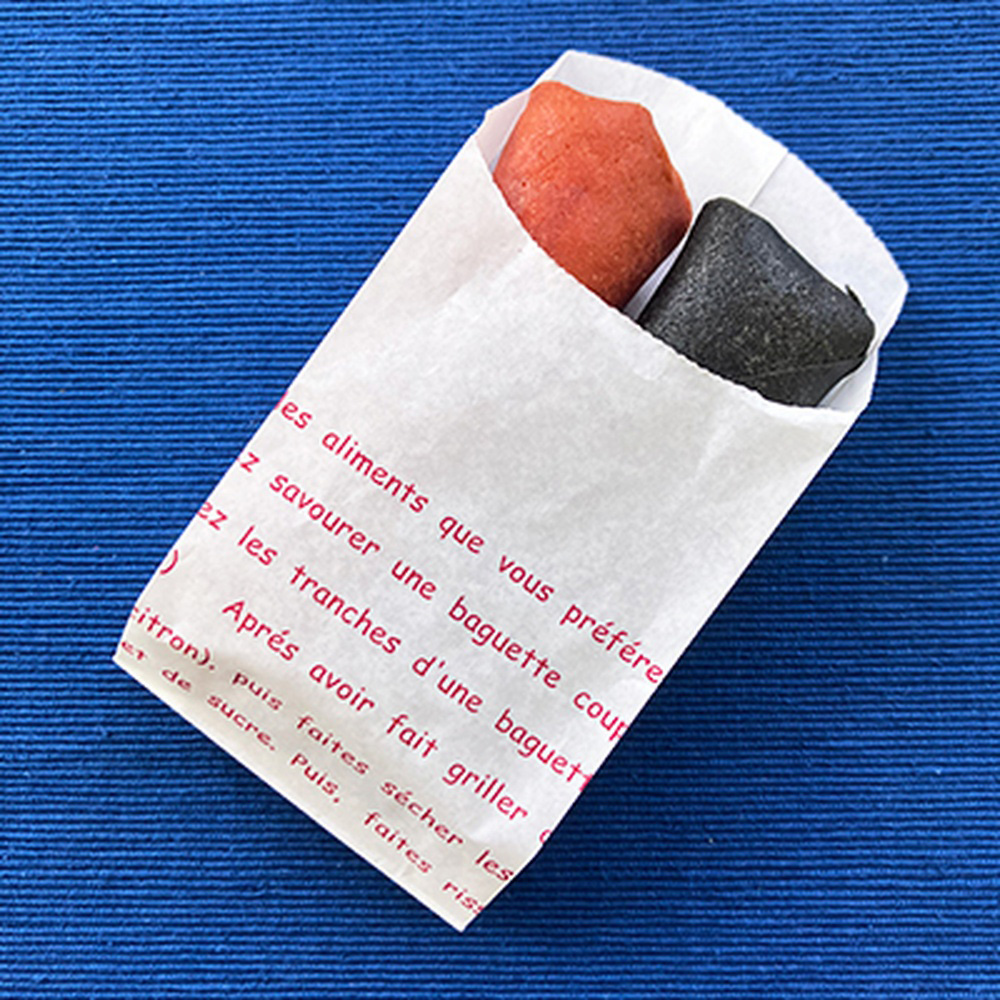 les aliments que vous préfére
z savourer une baguette coup
ez les tranches d'une baguett
)
Aprés avoir fait griller
citron). puis faites sécher les
et de sucre. Puis, faites riss